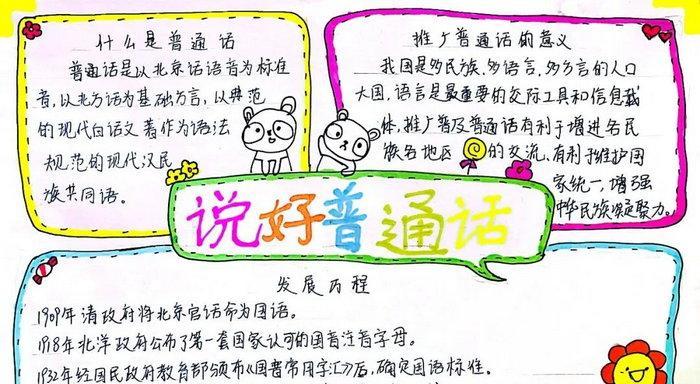 什么是普通话
普通话是以北京话语音为标准
音,以北方话为基础方言,以典范
的现代白话文著作为语法
规范的现代汉民
族共同语。
推广普通话的意义
我国是多民族、多语言、多方言的人口
大国,语言是最重要的交际工具和信息载
体,推广普及普通话有利于增进各民
族各地区的交流,有利于维护国
家统一,增强
中华民族凝聚力。
说好普通话
发展历程
1909年清政府将北京官话命为国语。
1918年北洋政府公布了第一套国家认可的国音注音字母。
1932年经国民政府教育部颁布《国音常用字汇》后,确定国语标准。